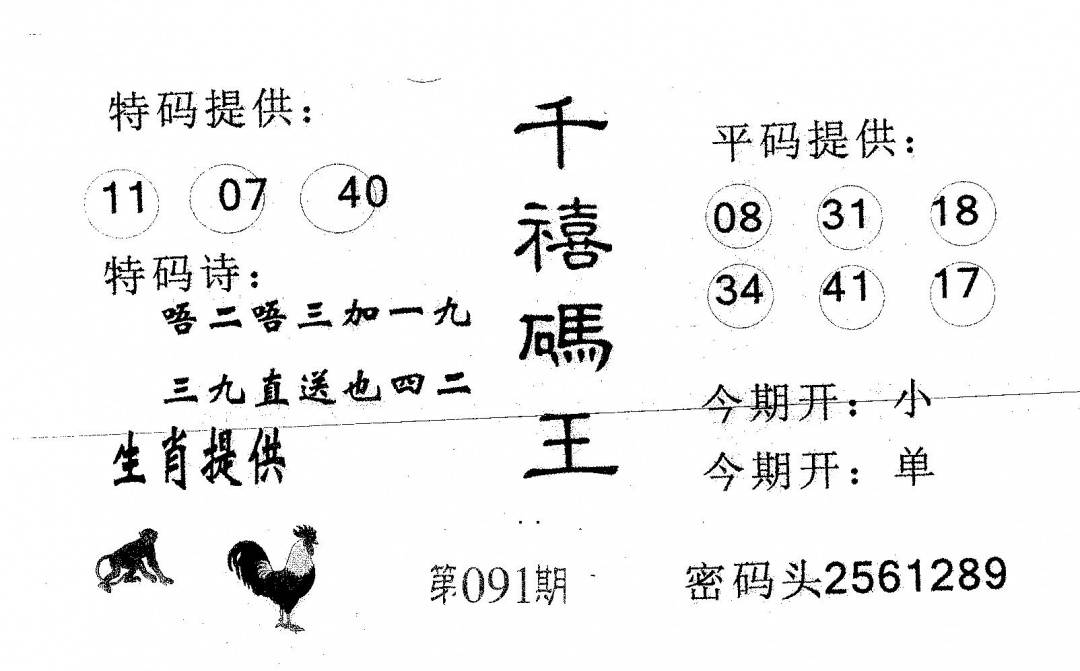 特码提供：
11 07 40
特码诗：
唔二唔三加一九
三九直送也四二
生肖提供
千禧碼王
第091期
平码提供：
08 31 18
34 41 17
今期开：小
今期开：单
密码头2561289